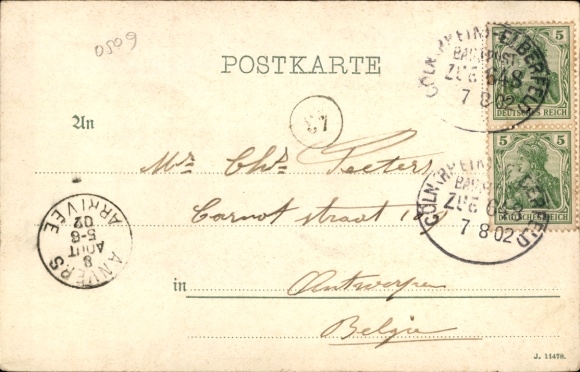 0509
POSTKARTE
CÖLN (RHEIN)-ELBERFELD
BAHNPOST
ZUG 648
7 8 02
5
DEUTSCHES REICH
An
Mr Chs Peeters
Carnot straat
5
DEUTSCHES REICH
CÖLN (RHEIN)-ELBERFELD
BAHNPOST
ZUG 648
7 8 02
ANVERS
8
AOUT
5-6
02
ARRIVÉE
in Antwerpen
Belgie
J. 11478.